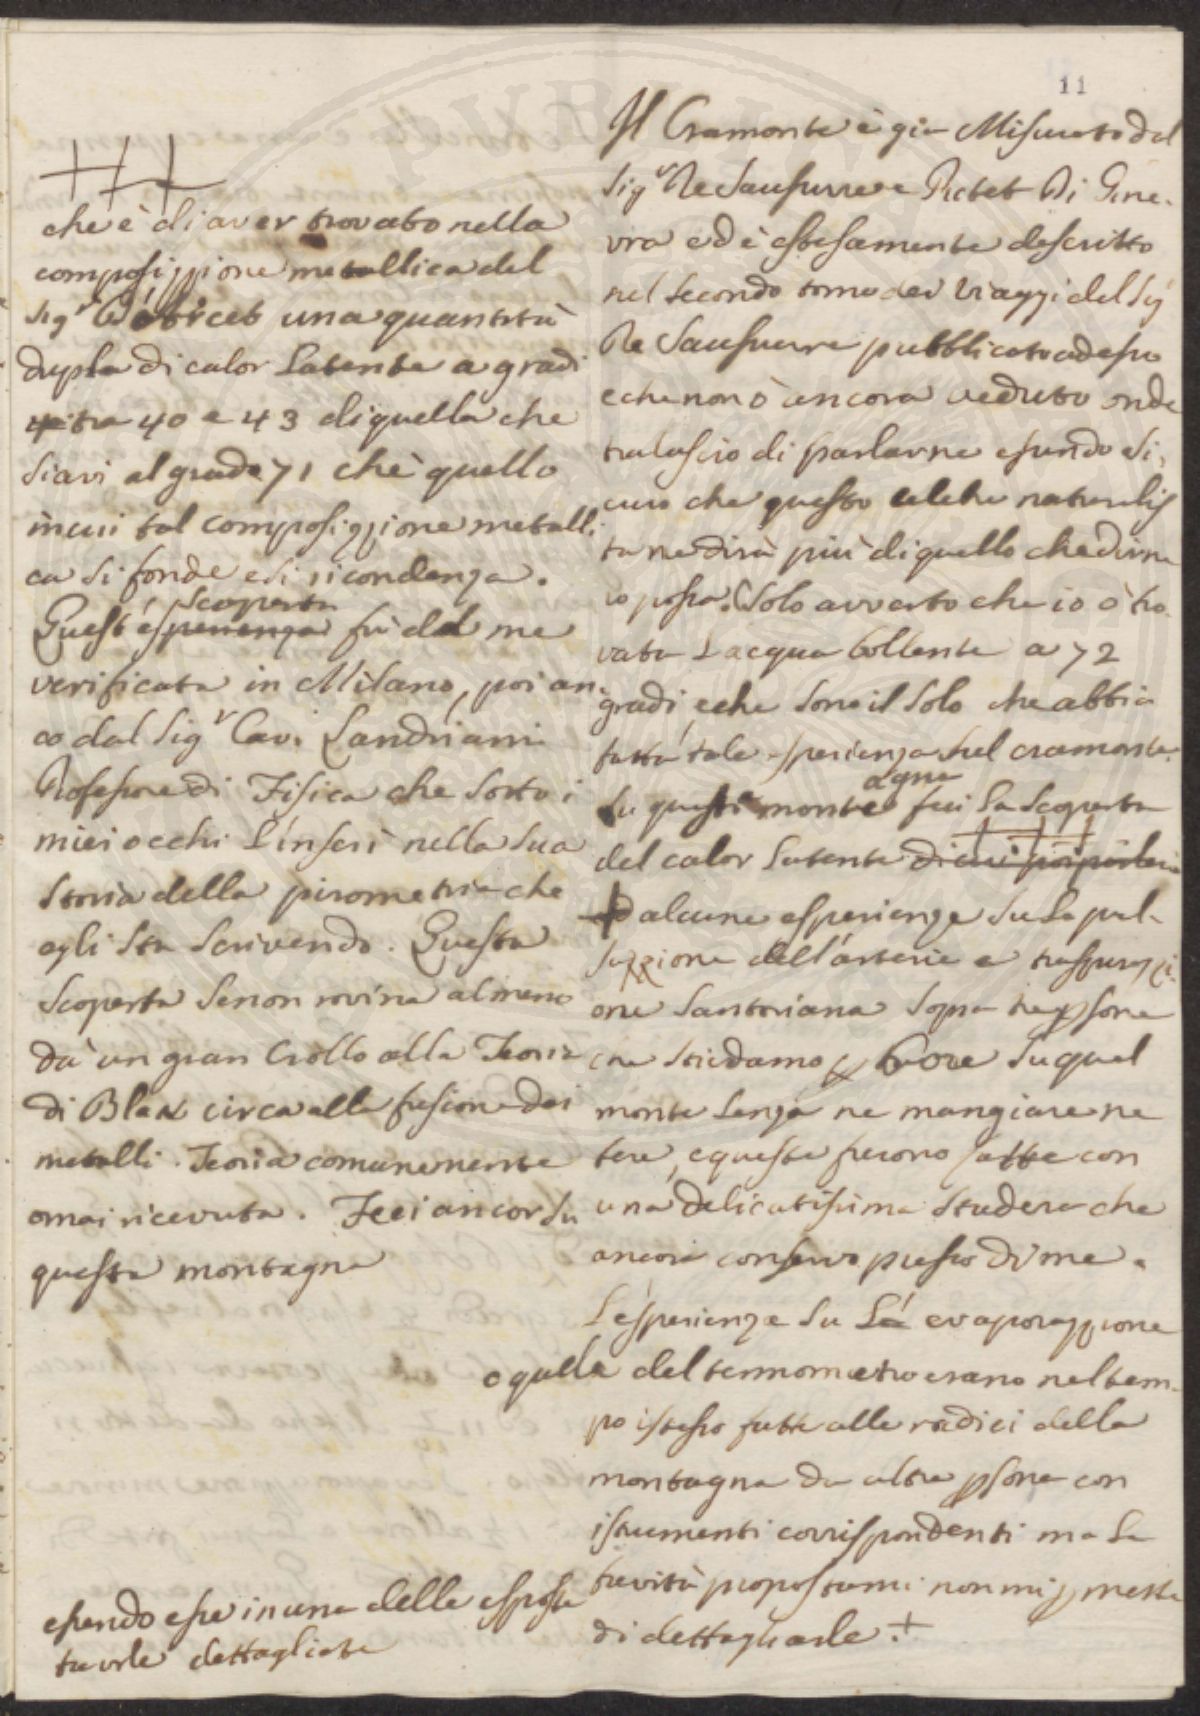 11
che è di aver trovato nella
composizzione metallica del
Sig.r Darcet una quantità
dupla di calor latente a gradi
tra 40 e 43 di quella che
siavi al grado 71 che è quello
in cui tal composizzione metalli
ca si fonde e si ricondenza.
Quest' esperienza scoperta fù da me
verificata in Milano, poi an-
co dal Sig.r Cav. Landriani
Professore di Fisica che sotto i
miei occhi l'inserì nella sua
storia della pirometria che
egli sta scrivendo. Questa
scoperta se non rovina almeno
dà un gran crollo alla Teoria
di Blak circa alla fusione dei
metalli. Teoria comunemente
omai ricevuta. Feci ancor su
questa montagna
essendo esse in una delle esposte
tavole dettagliate
Il Cramonte è gia Misurato dal
Sig.r De Saussurre e Pictet Di Gine-
vra ed è estesamente descritto
nel secondo tomo dei Viaggi del Sig
De Saussurre pubblicato adesso
e che non ò ancora veduto onde
tralascio di parlarne essendo si-
curo che questo celebre naturalis
ta ne dirà più di quello che dirne
io possa. Solo avverto che io ò tro-
vata l'acqua bollente a 72
gradi, e che sono il solo che abbia
fatta tale esperienza sul cramonte.
Su questa montagna feci la scoperta
del calor latente di cui poi parlerò
ed alcune esperienze su la pul-
sazzione dell'arterie e traspirazzi-
one santoriana sopra tre psone
che stiedamo 6 ore su quel
monte senza ne mangiare ne
bere, e queste furono fatte con
una delicatissima stadera che
ancora conservo presso di me.
L'esperienze su l'evaporazzione
o quelle del termometro erano nel tem-
po istesso fatte alle radici della
montagna da altre psone con
istrumenti corrispondenti ma la
brevità propostami non mi pmette
di dettagliarle. +